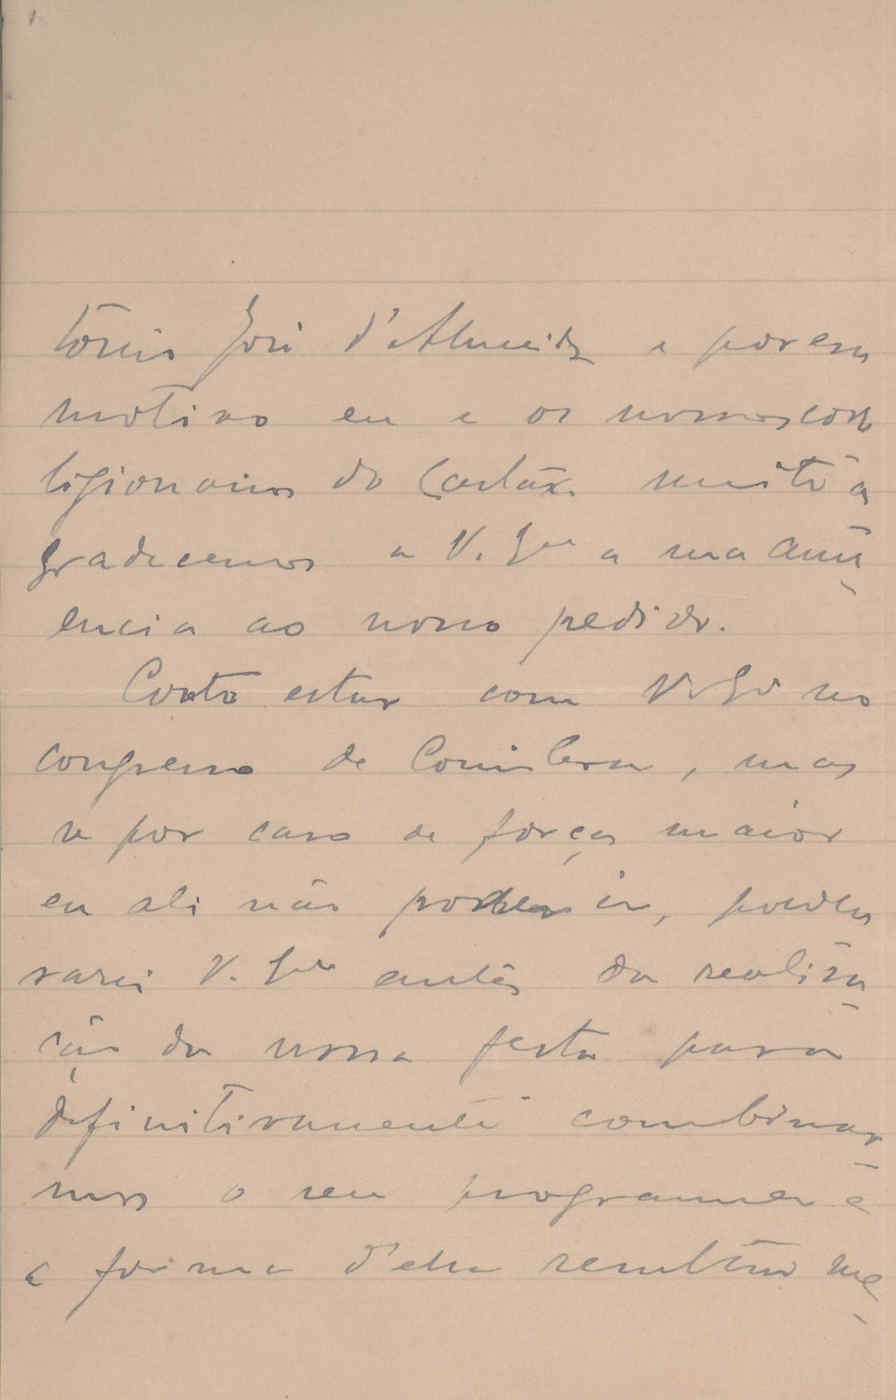 tonio José d'Almeida e por esse
motivo eu e os nossos corre
ligionarios do Cartaxo muito a
gradecemos a V. Exa a sua annu
encia ao nosso pedido.
Conto estar com V. Exa no
congresso de Coimbra, mas
se por caso de força maior
eu ali não poder ir, procu
rarei V. Exa antes da realisa
ção da nossa festa para
definitivamente combinar
mos o seu programma e
a forma d'ella resultar me